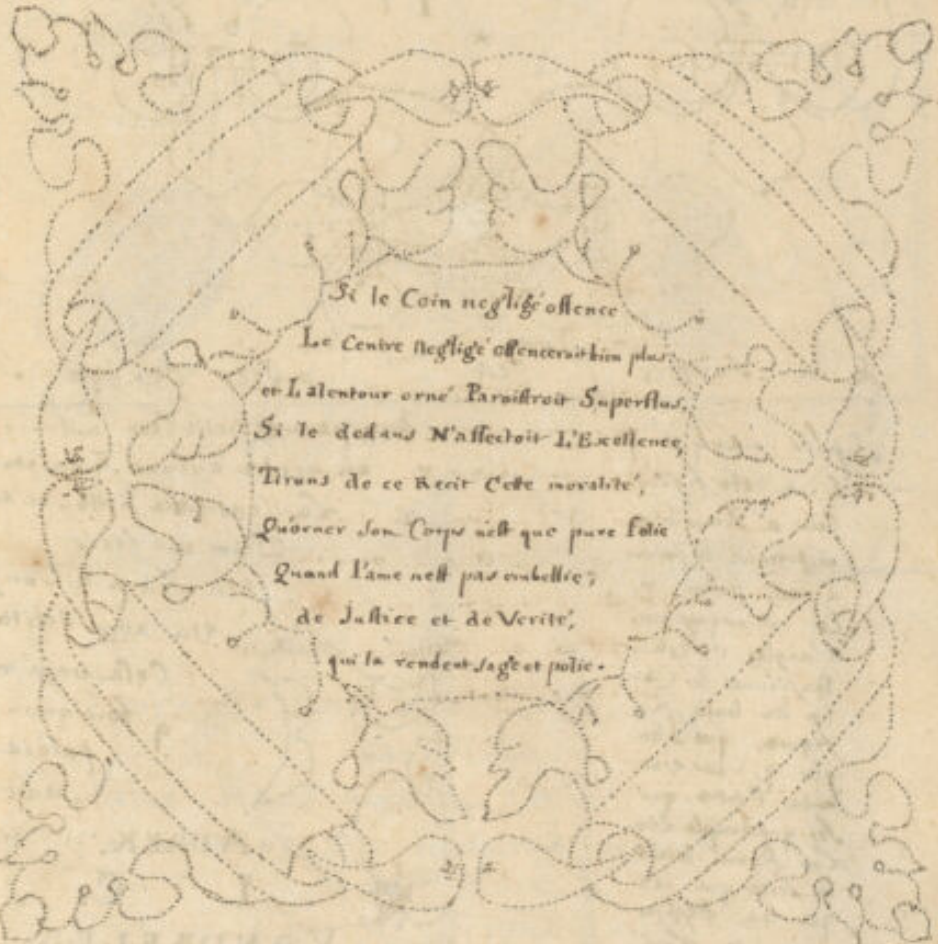 Si le Coin negligé offence
Le Centre negligé offenceroit bien plus.
et L'alentour orné Paroistroit Superflus,
Si le dedans N'affectoit L'Excellence,
Tirons de ce Recit Cette moralité,
Qu'orner son Corps n'est que pure folie
Quand l'ame nest pas embellie;
de Justice et de Verité,
qui la rendent sage et polie.